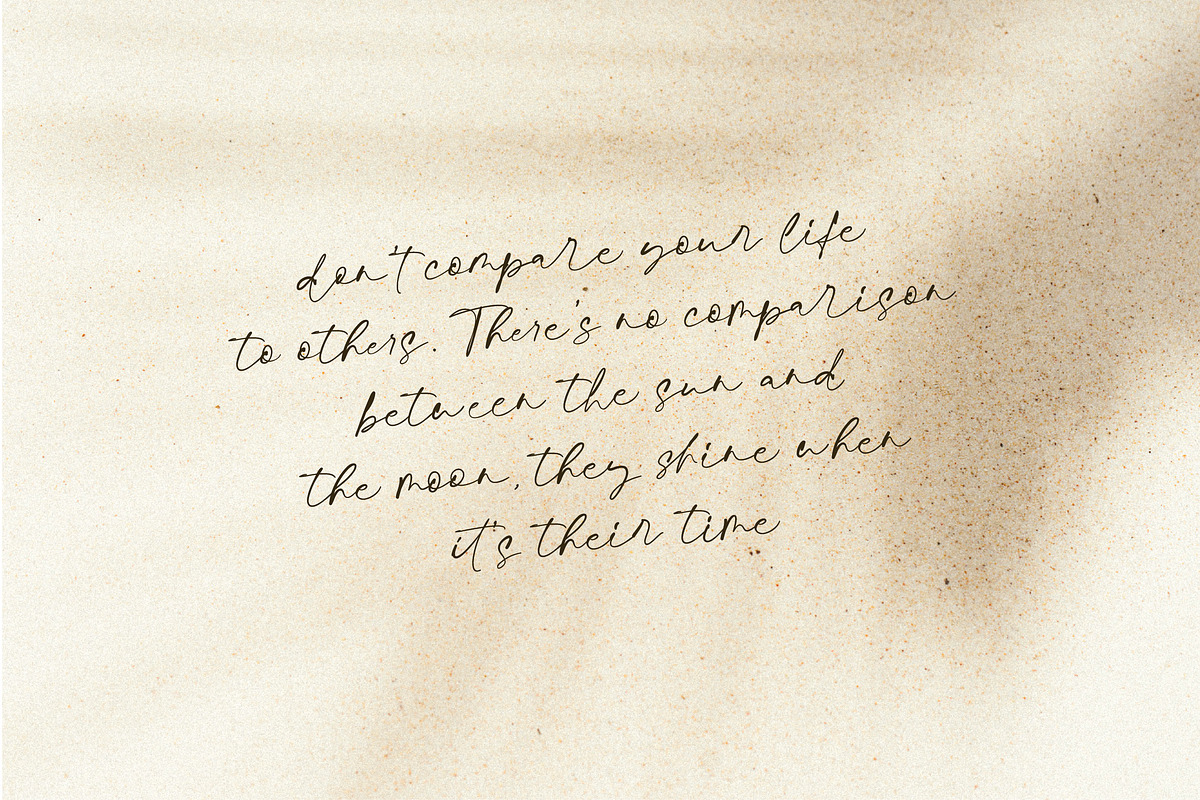 don't compare your life
to others. There's no comparison
between the sun and
the moon, they shine when
it's their time